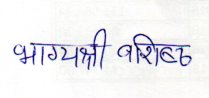 भाग्यश्री वशिष्ठ